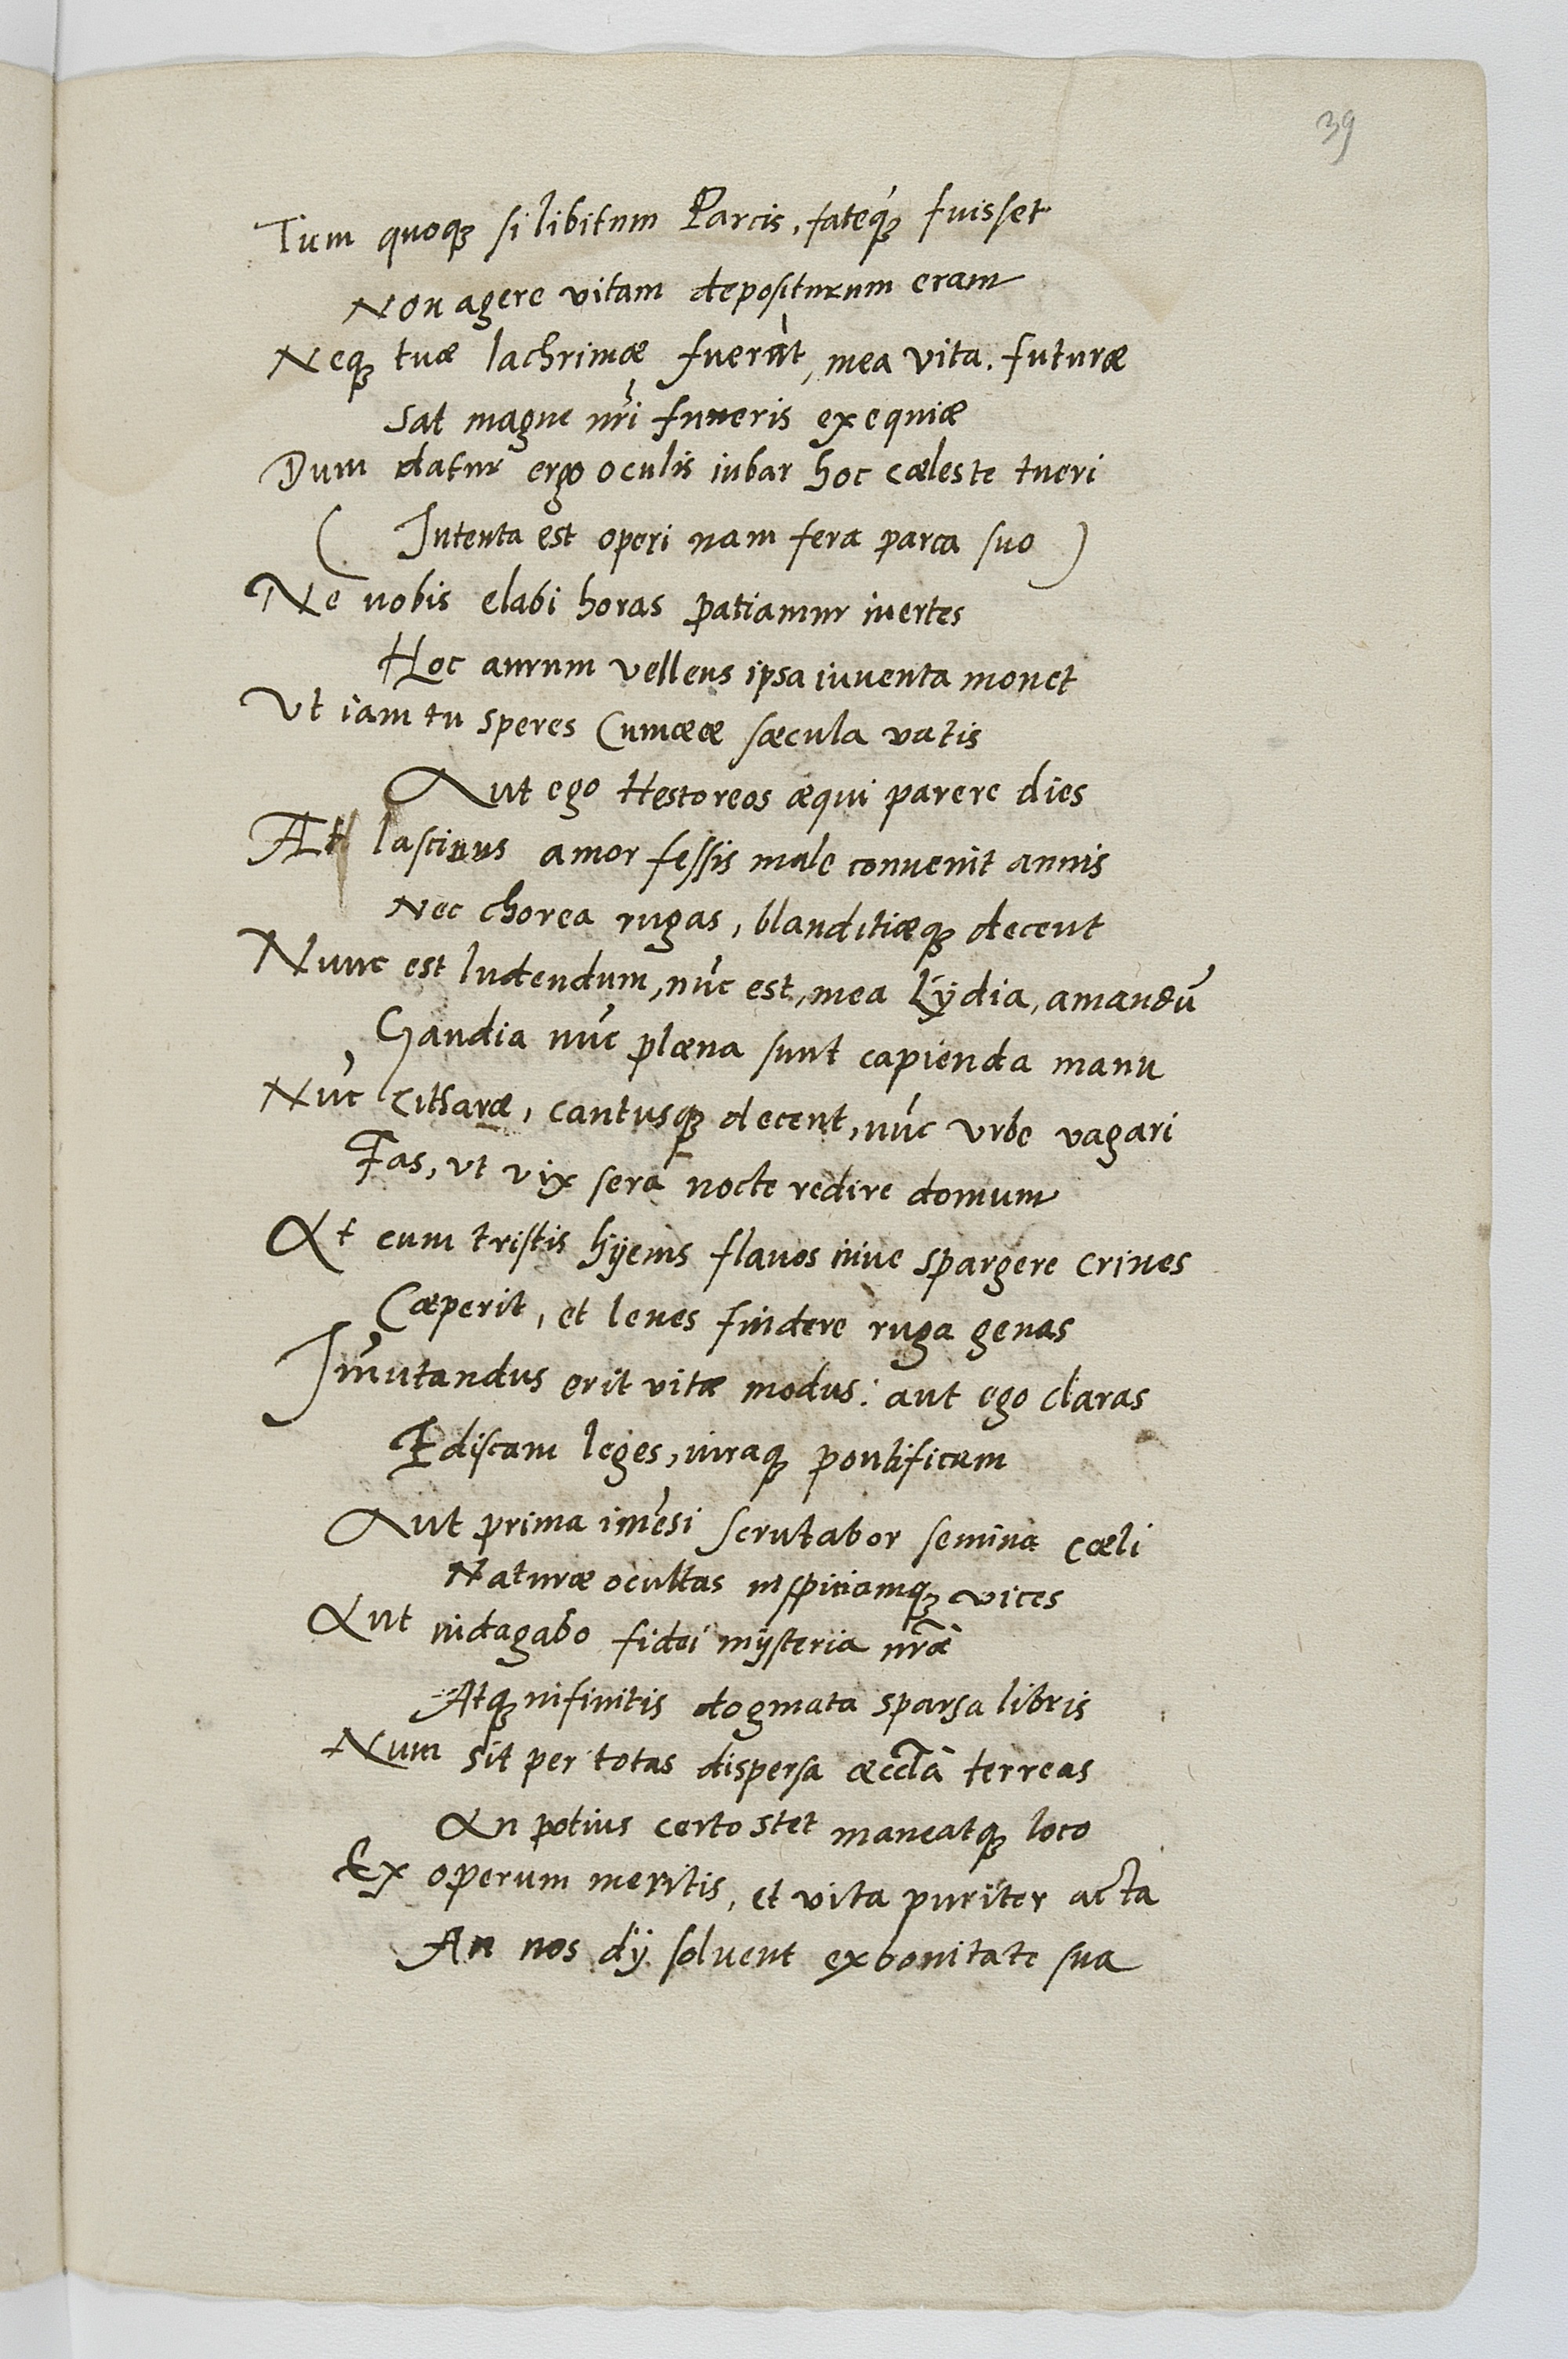 39
Tum quoqꝫ si libitum Parcis, fateqꝫ́ fuisset
Non agere vitam depositurum eram
Neqꝫ tuæ lachrimæ fuerāt, mea vita. futuræ
Sat magne nr̄i funeris exequiæ
Dum datur ergo oculis iubar hoc cæleste tueri
( Intenta est operi nam fera parca suo )
Ne nobis elabi horas patiamur inertes
Hoc aurum vellens ipsa iuventa monet
Ut iam tu speres Cumææ sæcula vatis
Aut ego Nestoreos æqui parere dies
At lascivus amor fessis male convenit annis
Nec chorea rugas, blanditiæqꝫ decent
Nunc est ludendum, nūc est, mea Lÿdia, amandū
Gaudia nūc plæna sunt capienda manu
Nūc Citharæ, cantusqꝫ decent, nūc vrbe vagari
Fas, vt vix sera nocte redire domum
At cum tristis hÿems flavos nive spargere crines
Cæperit, et leves findere ruga genas
Im̄utandus erit vitæ modus: aut ego claras
Ediscam leges, iuraqꝫ pontificum
Aut prima im̄ēsi scrutabor semina cæli
Naturæ ocultas inspiciamqꝫ vices
Aut indagabo fidei mÿsteria nr̄æ
Atqꝫ infinitis dogmata sparsa libris
Num sit per totas dispersa æccl̄a terreas
An potius certo stet maneatqꝫ loco
Ex operum meritis, et vita puriter acta
An nos dÿ solvent ex bonitate sua